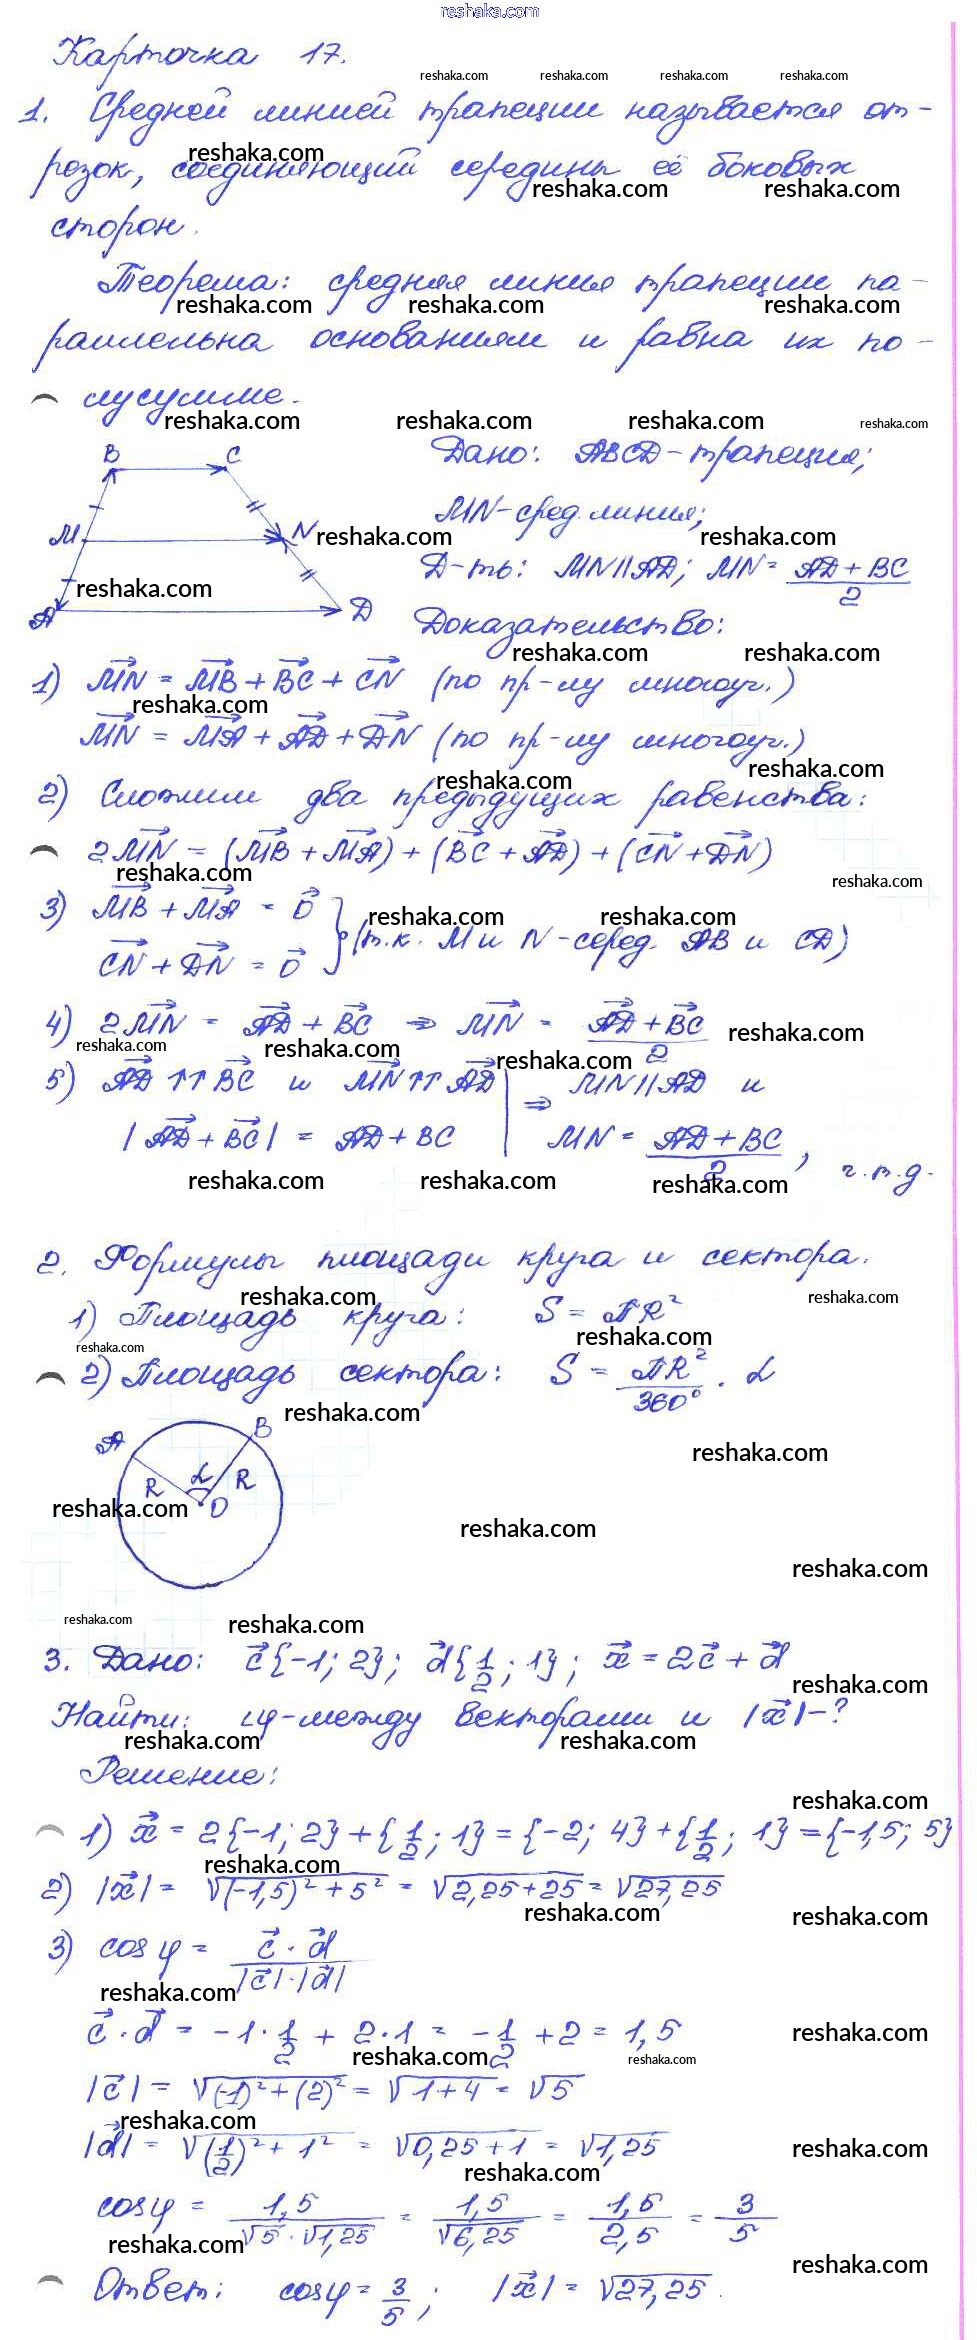 reshaka.com
Карточка 17.
1. Средней линией трапеции называется от-
резок, соединяющий середины её боковых
сторон.
Теорема: средняя линия трапеции па-
раллельна основаниям и равна их по-
лусумме.
B C
M N
A D
Дано: ABCD-трапеция;
MN-сред. линия;
Д-ть: MN||AD; MN = (AD + BC)/2
Доказательство:
1) MN⃗ = MB⃗ + BC⃗ + CN⃗ (по пр-лу многоуг.)
MN⃗ = MA⃗ + AD⃗ + DN⃗ (по пр-лу многоуг.)
2) Сложим два предыдущих равенства:
2MN⃗ = (MB⃗ + MA⃗) + (BC⃗ + AD⃗) + (CN⃗ + DN⃗)
3) MB⃗ + MA⃗ = 0⃗
CN⃗ + DN⃗ = 0⃗ } (т.к. M и N-серед. AB и CD)
4) 2MN⃗ = AD⃗ + BC⃗ ⇒ MN⃗ = (AD⃗ + BC⃗)/2
5) AD⃗ ↑↑ BC⃗ и MN⃗ ↑↑ AD⃗ | ⇒ MN||AD и
|AD⃗ + BC⃗| = AD + BC | MN = (AD + BC)/2, ч.т.д.
2. Формулы площади круга и сектора.
1) Площадь круга: S = ПR²
2) Площадь сектора: S = ПR²/360° · α
A B
R α R
O
3. Дано: c⃗{-1; 2}; d⃗{1/2; 1}; x⃗ = 2c⃗ + d⃗
Найти: ∠φ-между векторами и |x⃗|-?
Решение:
1) x⃗ = 2{-1; 2} + {1/2; 1} = {-2; 4} + {1/2; 1} = {-1,5; 5}
2) |x⃗| = √((-1,5)² + 5²) = √(2,25 + 25) = √27,25
3) cos φ = (c⃗ · d⃗)/(|c⃗| · |d⃗|)
c⃗ · d⃗ = -1 · 1/2 + 2·1 = -1/2 + 2 = 1,5
|c⃗| = √((-1)² + (2)²) = √(1+4) = √5
|d⃗| = √((1/2)² + 1²) = √(0,25 + 1) = √1,25
cos φ = 1,5/(√5 · √1,25) = 1,5/√6,25 = 1,5/2,5 = 3/5
Ответ: cos φ = 3/5; |x⃗| = √27,25.